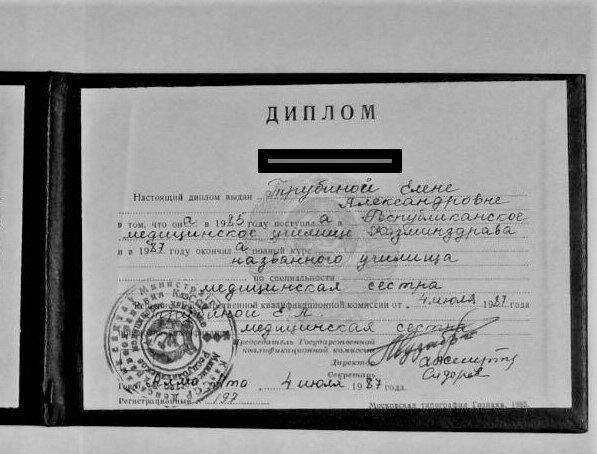 ДИПЛОМ
Настоящий диплом выдан Трубиной Елене
Александровне
в том, что он а в 1985 году поступил а в Республиканское
медицинское училище Казминздрава
и в 1987 окончил а полный курс
названного училища
по специальности
медицинская сестра
Государственной квалификационной комиссии от 4 июля 1987
Трубиной Е.А.
медицинская сестра
Председатель Государственной
квалификационной комиссии
Директор
Секретарь
Сидорев
Город Алма-Ата 4 июля 1987 года.
Регистрационный № 197
Московская типография Гознака.